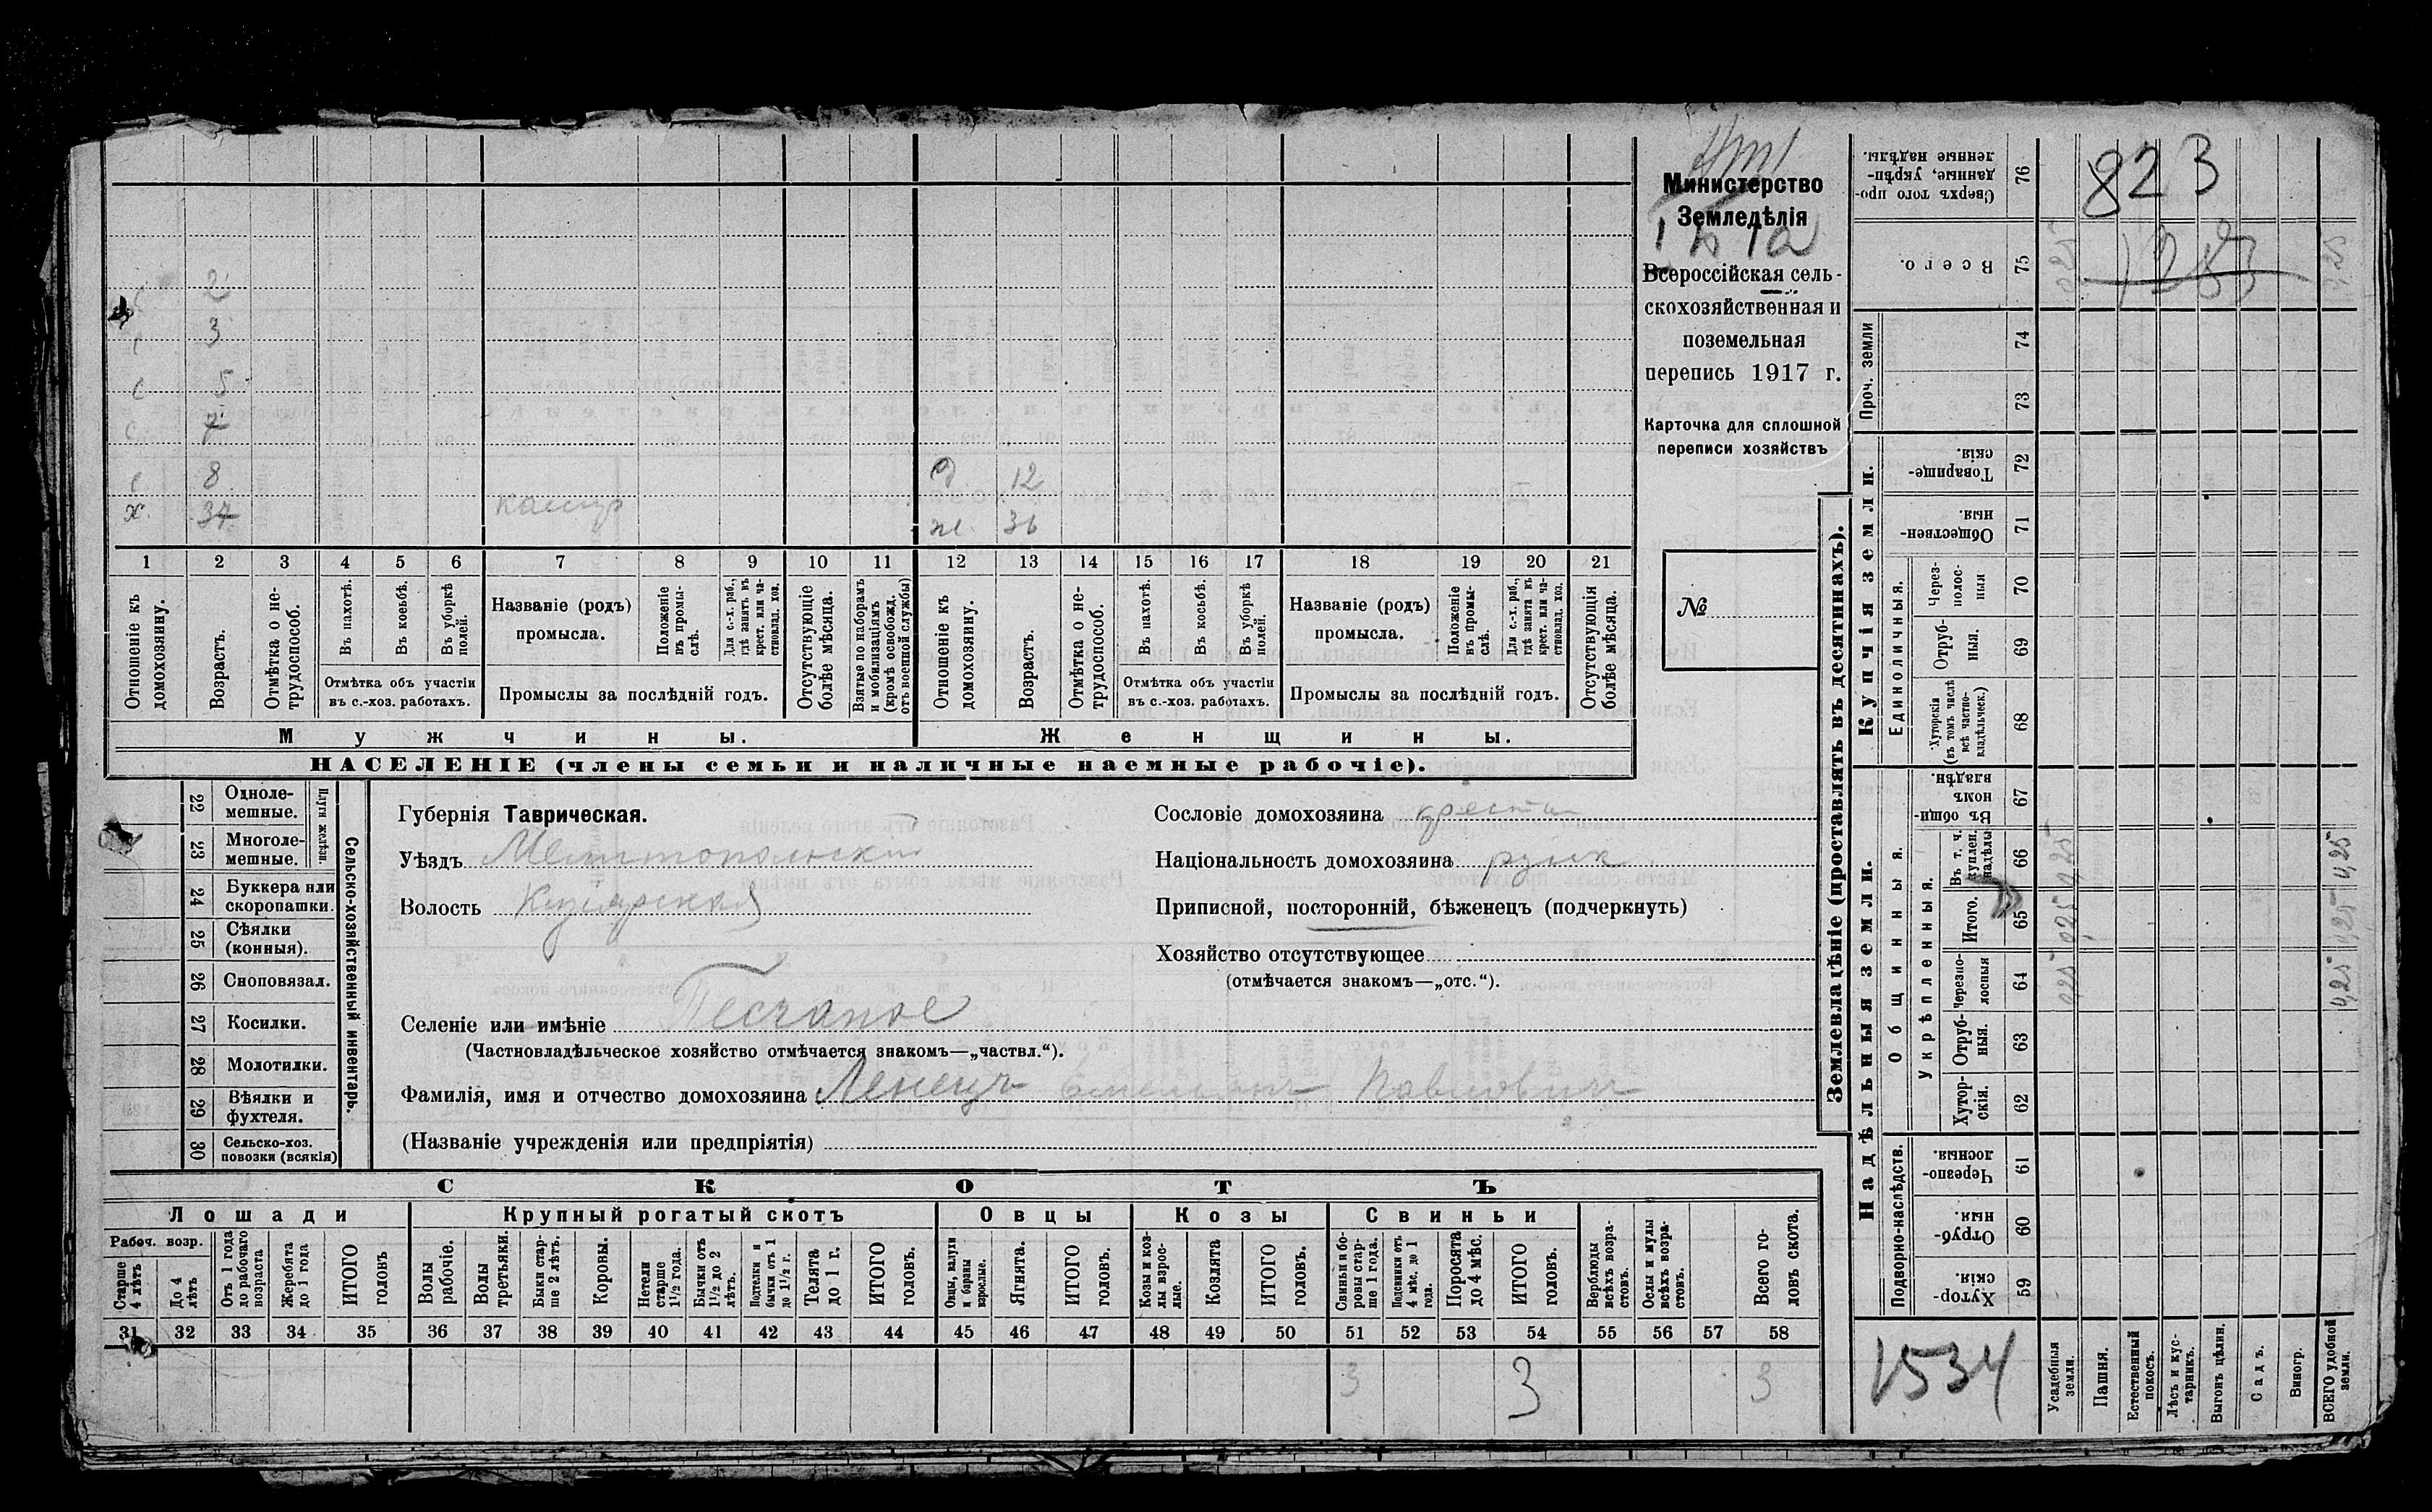 Министерство
Земледѣлія
Всероссійская сель-
скохозяйственная и
поземельная
перепись 1917 г.
Карточка для сплошной
переписи хозяйствъ
№
823
с 2
с 3
с 5
с 7
с 8 д 12
х. 37 кассир ж. 36
1 2 3 4 5 6 7 8 9 10 11 12 13 14 15 16 17 18 19 20 21
Отношеніе къ домохозяину.
Возрастъ.
Отмѣтка о не-трудоспособ.
Въ пахотѣ.
Въ косьбѣ.
Въ уборкѣ полей.
Отмѣтка объ участіи въ с.-хоз. работахъ.
Названіе (родъ) промысла.
Положеніе въ промы-слѣ.
Для с.-х. раб., гдѣ занятъ въ крест. или ча-стновлад. хоз.
Промыслы за послѣдній годъ.
Отсутствующіе болѣе мѣсяца.
Взятые по наборамъ и мобилизаціямъ (кромѣ освобожд. отъ военной службы)
Отношеніе къ домохозяину.
Возрастъ.
Отмѣтка о не-трудоспособ.
Въ пахотѣ.
Въ косьбѣ.
Въ уборкѣ полей.
Отмѣтка объ участіи въ с.-хоз. работахъ.
Названіе (родъ) промысла.
Положеніе въ промы-слѣ.
Для с.-х. раб., гдѣ занята въ крест. или ча-стновлад. хоз.
Промыслы за послѣдній годъ.
Отсутствующія болѣе мѣсяца.
Мужчины.
Женщины.
НАСЕЛЕНІЕ (члены семьи и наличные наемные рабочіе).
22 Одноле-мешные.
23 Многоле-мешные.
Плуги желѣзн.
24 Буккера или скоропашки.
25 Сѣялки (конныя).
26 Сноповязал.
27 Косилки.
28 Молотилки.
29 Вѣялки и фухтеля.
30 Сельско-хоз. повозки (всякія)
Сельско-хозяйственный инвентарь.
Губернія Таврическая.
Уѣздъ Мелитопольский
Волость Кизиярская
Селеніе или имѣніе Песчаное
(Частновладѣльческое хозяйство отмѣчается знакомъ—„частвл.“).
Фамилія, имя и отчество домохозяина Ленецъ Емельян Павлович
(Названіе учрежденія или предпріятія)
Сословіе домохозяина крестьян
Національность домохозяина русск
Приписной, посторонній, бѣженецъ (подчеркнуть)
Хозяйство отсутствующее
(отмѣчается знакомъ—„отс.“).
СКОТЪ
Лошади
Крупный рогатый скотъ
Овцы
Козы
Свиньи
Рабоч. возр.
Старше 4 лѣтъ
До 4 лѣтъ
Отъ 1 года до рабочаго возраста
Жеребята до 1 года
ИТОГО головъ
Волы рабочіе.
Волы третьяки.
Быки стар-ше 2 лѣтъ.
Коровы.
Нетели старше 1½ года.
Бычки отъ 1½ до 2 лѣтъ.
Подтелки и бычки отъ 1 до 1½ г.
Телята до 1 г.
ИТОГО головъ.
Овцы, валухи и бараны взрослые.
Ягнята.
ИТОГО головъ.
Козы и коз-лы взрос-лые.
Козлята
ИТОГО головъ.
Свиньи и бо-ровы стар-ше 1 года.
Подсвинки отъ 4 мѣс. до 1 года.
Поросята до 4 мѣс.
ИТОГО головъ.
Верблюды всѣхъ возра-стовъ.
Ослы и мулы всѣхъ возра-стовъ.
Всего го-ловъ скота.
31 32 33 34 35 36 37 38 39 40 41 42 43 44 45 46 47 48 49 50 51 52 53 54 55 56 57 58
3 3 3
Землевладѣніе (проставлять въ десятинахъ).
Надѣльныя земли.
Купчія земли.
Проч. земли
Подворно-наслѣдств.
Общинныя.
Укрѣпленныя.
Единоличныя.
76 Сверхъ того про-данные, укрѣп-ленные надѣлы.
75 Всего. 0,25
74
73
72 Товарище-скія.
71 Обществен-ныя.
70 Через-полос-ныя
69 Отруб-ныя.
68 Хуторскія (въ томъ числѣ всѣ частно-владѣльческ.)
67 Въ общин-номъ владѣн.
66 Въ т. ч. куплен. надѣлы 0,25 0,25
65 Итого. 0,25 0,25
64 Черезпо-лосныя 0,25 0,25
63 Отруб-ныя.
62 Хутор-скія.
61 Черезпо-лосныя.
60 Отруб-ныя.
59 Хутор-скія.
1534
Усадебныя земли.
Пашня.
Естественный покосъ.
Лѣсъ и кус-тарникъ.
Выгонъ цѣлин.
Садъ.
Виногр.
ВСЕГО удобной земли.